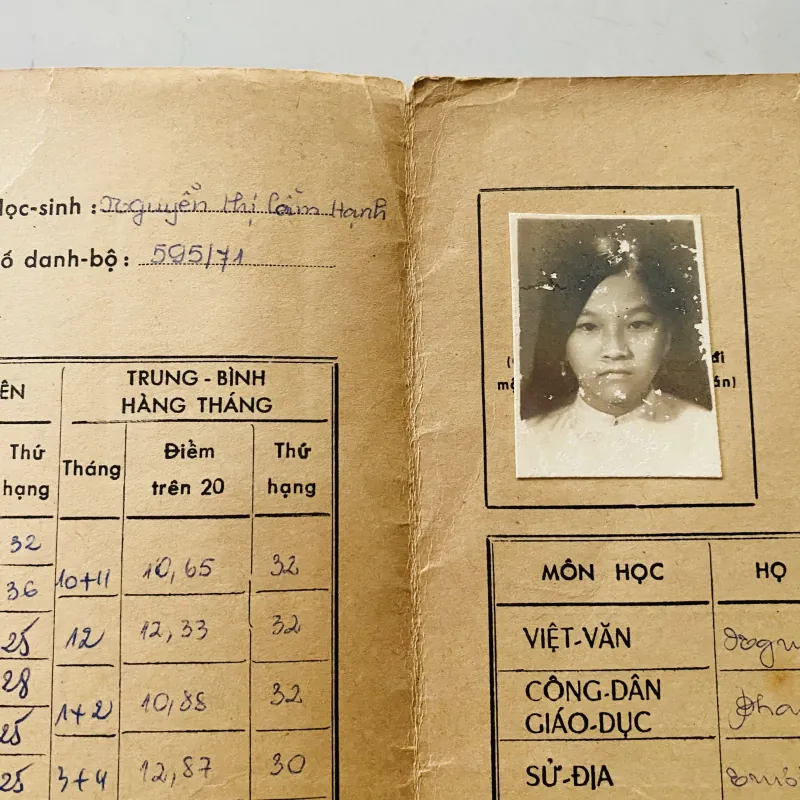 Học-sinh : Nguyễn Thị Cẩm Hạnh
ố danh-bộ : 595/71
ÊN
TRUNG - BÌNH
HÀNG THÁNG
Thứ
hạng
Tháng
Điểm
trên 20
Thứ
hạng
32
36 10+11 10,65 32
25 12 12,33 32
28
25 1+2 10,88 32
25 3+4 12,87 30
MÔN HỌC HỌ
VIỆT-VĂN
CÔNG-DÂN
GIÁO-DỤC
SỬ-ĐỊA